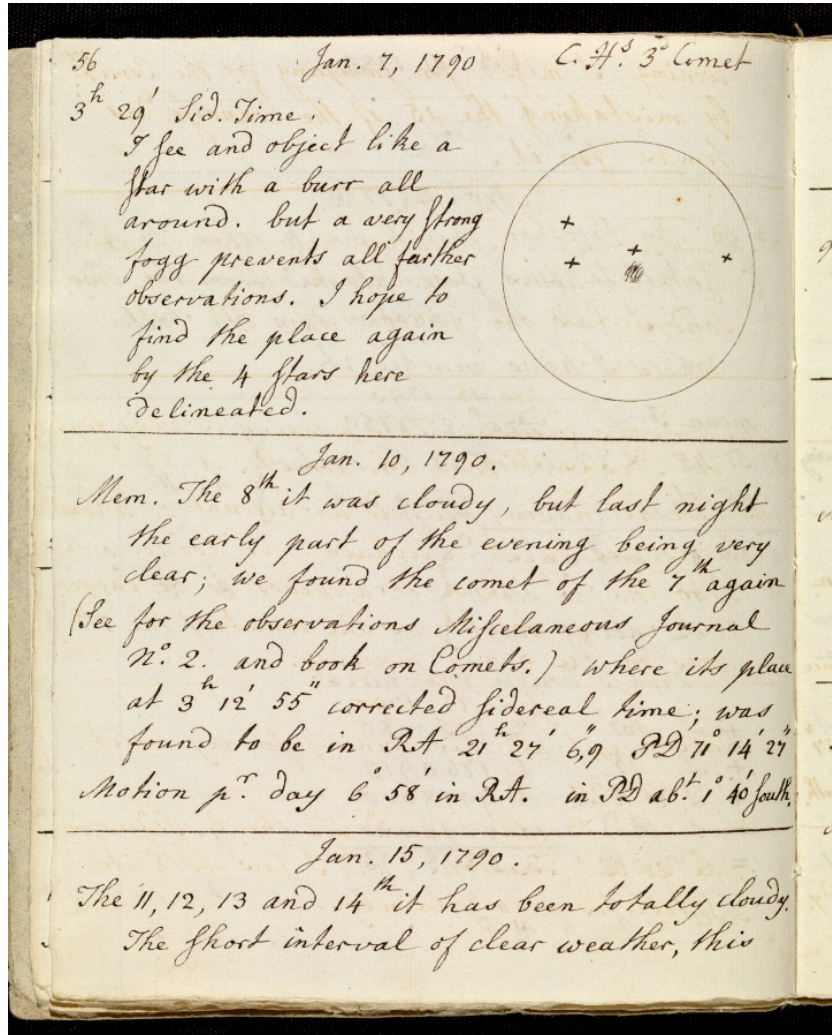 56 Jan. 7, 1790 C. Hs. 3d Comet
3h 29' Sid. Time.
I see and object like a
star with a burr all
around. but a very strong
fogg prevents all farther
observations. I hope to
find the place again
by the 4 stars here
delineated.
Jan. 10, 1790.
Mem. The 8th it was cloudy, but last night
the early part of the evening being very
clear; we found the comet of the 7th again
(See for the observations Miscelaneous Journal
No. 2. and book on Comets.) where its place
at 3h 12' 55" corrected sidereal time; was
found to be in RA 21h 27' 6",9 PD 71° 14' 27"
Motion pr. day 6° 58' in RA. in PD abt. 1° 40' south.
Jan. 15, 1790.
The 11, 12, 13 and 14th it has been totally cloudy.
The short interval of clear weather, this